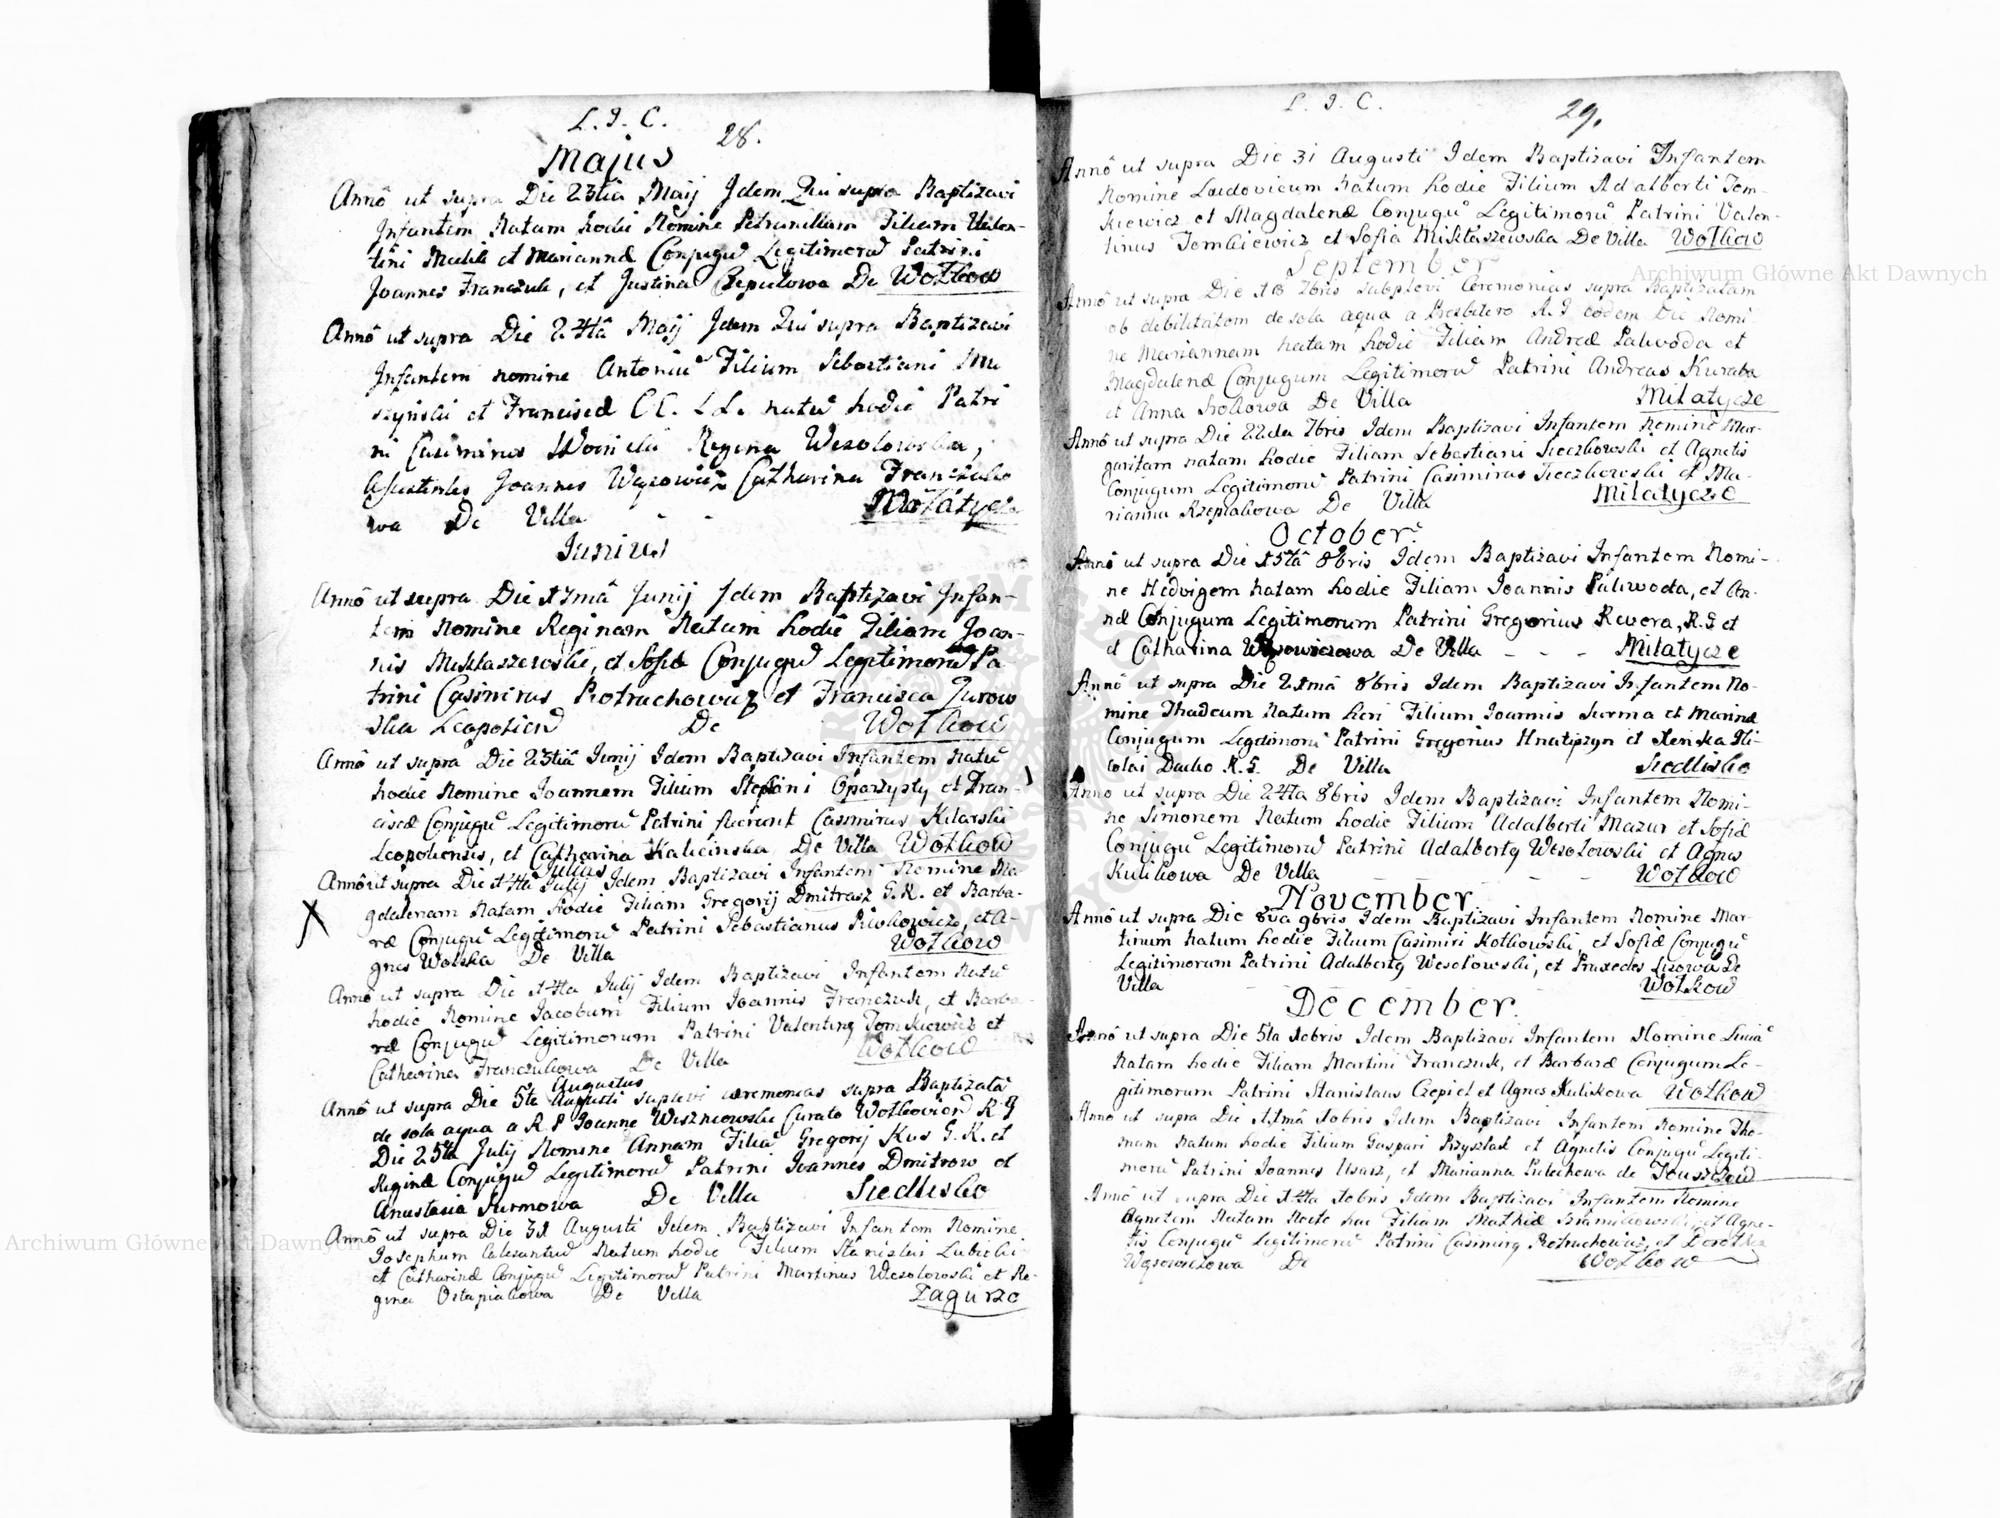 L. J. C.
28.
Majus
Annô ut supra Die 23tia Maij Idem Qui supra Baptizavi
Infantem Natam hodie Nomine Petronillam Filiam Valen-
tini et Mariannæ Conjugū Legitimorū Patrini
Joannes Franczuk, et Justina Czepielowa De Wołkow
Annô ut supra Die 24tâ Maij Idem Qui supra Baptizavi
Infantem nomine Antoniū Filium Sebastiani Mu
szyński et Franciscæ C C. L L. natū hodie Patri
ni Casimirus Regina Wesolowska,
Assistentes Joannes Wąsowicz Catharina Franczuko
wa De Villa - -
Junius
Annô ut supra Die 17mâ Junij Idem Baptizavi Infan-
tem Nomine Reginam Natam hodie Filiam Joan-
nis Mikłaszewski, et Sofiæ Conjugū Legitimorū Pa-
trini Casimirus Piotrachowicz et Francisca Jurow
ska Leopolien De Wołkow
Annô ut supra Die 23tiâ Junij Idem Baptizavi Infantem Natū
hodie Nomine Joannem Filium Stephani Oparzysty et Fran-
ciscæ Conjugū Legitimorū Patrini fuerunt Casimirus Kilarski
Leopoliensis, et Catharina Kalicinska De Villa Wołkow
Julius
Annô ut supra Die 14ta Julij Idem Baptizavi Infantem Nomine Ma
gdalenam Natam hodie Filiam Gregorij Dmitrasz G. R. et Barba-
ræ Conjugū Legitimorū Patrini Sebastianus Piotrowicz, et A-
gnes Wolska De Villa Wołkow
Annô ut supra Die 14ta Julij Idem Baptizavi Infantem Natū
hodie Nomine Jacobum Filium Joannis Franczuk, et Barba-
ræ Conjugū Legitimorum Patrini Valentinq Tomkiewicz et
Catharina Franczukowa De Villa Wołkow
Augustus
Annô ut supra Die 5ta Augusti suplevi ceremonias supra Baptizatā
de sola aqua a R. P Joanne Wiszniowski Curato Wołkovien R G
Die 25ta Julij Nomine Annam Filiā Gregorij Kus G. R. et
Reginæ Conjugū Legitimorū Patrini Joannes Dmitrow et
Anastasia Surmowa De Villa Siedlisko
Annô ut supra Die 31 Augusti Idem Baptizavi Infantem Nomine
Josephum Natum hodie Filium Stanislai Lubicki
et Catharinæ Conjugū Legitimorū Patrini Martinus Wesolowski et Re-
gina Ostapiakowa De Villa Zagurze
L. J. C.
29.
Annô ut supra Die 31 Augusti Idem Baptizavi Infantem
Nomine Ludovicum Natum hodie Filium Adalberti Tom-
kiewicz et Magdalenæ Conjugū Legitimorū Patrini Valen-
tinus Tomkiewicz et Sofia Mikłaszewska De Villa Wołkow
September
Annô ut supra Die 18 7bris suplevi Ceremonias supra Baptizatam
ob debilitatem de sola aqua a Presbitero R. G eodem Die Nomi
ne Mariannam Natam hodie Filiam Andreæ Paliwoda et
Magdalenæ Conjugum Legitimorū Patrini Andreas Kuraba
et Anna De Villa Milatycze
Annô ut supra Die 22da 7bris Idem Baptizavi Infantem Nomine Mar-
garitam natam hodie Filiam Sebastiani Sieczkowski et Agnetis
Conjugum Legitimorū Patrini Casimirus Sieczkowski et Ma-
rianna Rzepiakowa De Villa Milatycze
October
Annô ut supra Die 15tâ 8bris Idem Baptizavi Infantem Nomi-
ne Hedvigem Natam hodie Filiam Joannis Paliwoda, et An-
næ Conjugum Legitimorum Patrini Gregorius Rewera, R. G et
et Catharina Wąsowiczowa De Villa - - - Milatycze
Annô ut supra Die 21mâ 8bris Idem Baptizavi Infantem No-
mine Thadeum Natum heri Filium Joannis Surma et Marinæ
Conjugum Legitimorū Patrini Gregorius Hnatiszyn et Xenka Ni-
colai Dacko R. G. De Villa Siedlisko
Anno ut supra Die 24ta 8bris Idem Baptizavi Infantem Nomi-
ne Simonem Natum hodie Filium Adalberti Mazur et Sofiæ
Conjugū Legitimorū Patrini Adalbertq Wesołowski et Agnes
Kulikowa De Villa - - - Wołkow
November
Annô ut supra Die 8va 9bris Idem Baptizavi Infantem Nomine Mar-
tinum Natum hodie Filium Casimiri Kotkowski, et Sofiæ Conjugū
Legitimorum Patrini Adalbertq Wesołowski, et Praxedes Lisowa De
Villa - - - Wołkow
December
Annô ut supra Die 5ta Xobris Idem Baptizavi Infantem Nomine Luciā
Natam hodie Filiam Martini Franczuk, et Barbaræ Conjugum Le-
gitimorum Patrini Stanislaus Czepiel et Agnes Kulikowa Wołkow
Annô ut supra Die 11mâ Xobris Idem Baptizavi Infantem Nomine Tho-
mam Natum hodie Filium Gaspari Przyszlak et Agnetis Conjugū Legiti-
morū Patrini Joannes Usarz, et Marianna de
Annô ut supra Die 14ta Xobris Idem Baptizavi Infantem Nomine
Agnetem Natam Nocte hac Filiam Mathiæ et Agne-
tis Conjugū Legitimorū Patrini Casimirq Piotruchowicz, et Dorothea
Wąsowiczowa De Wołkow
Archiwum Główne Akt Dawnych
Archiwum Główne Akt Dawnych